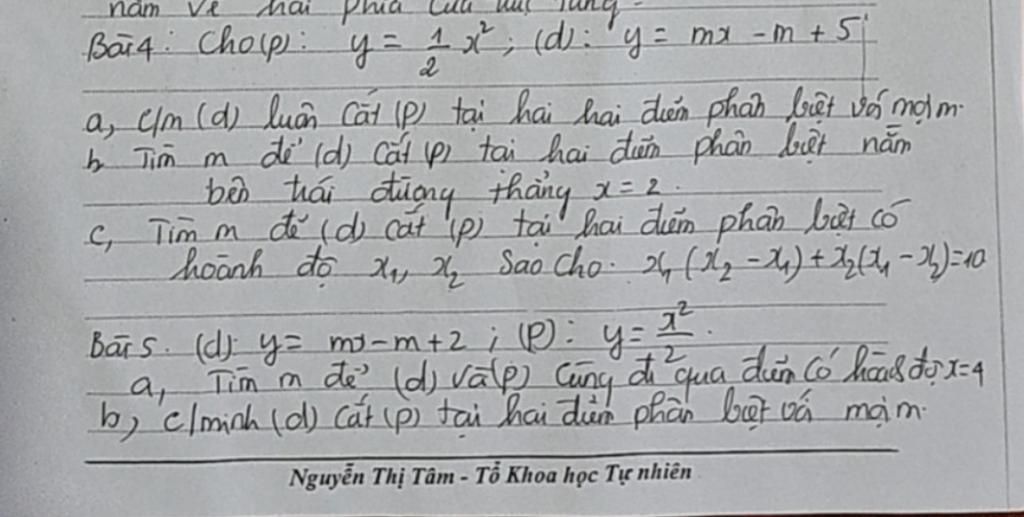 nằm về hai phía của trục tung.
Bài 4: Cho (p): y = 1/2 x²; (d): y = mx - m + 5
a, c/m (d) luôn cắt (p) tại hai hai điểm phân biệt với mọi m.
b, Tìm m để (d) cắt (p) tại hai điểm phân biệt nằm
bên trái đường thẳng x = 2.
c, Tìm m để (d) cắt (p) tại hai điểm phân biệt có
hoành độ x₁, x₂ sao cho. x₁(x₂ - x₁) + x₂(x₁ - x₂) = 10
Bài 5. (d): y = mx - m + 2; (p): y = x²/2.
a, Tìm m để (d) và (p) cùng đi qua điểm có hoành độ x = 4
b, c/minh (d) cắt (p) tại hai điểm phân biệt với mọi m.
Nguyễn Thị Tâm - Tổ Khoa học Tự nhiên